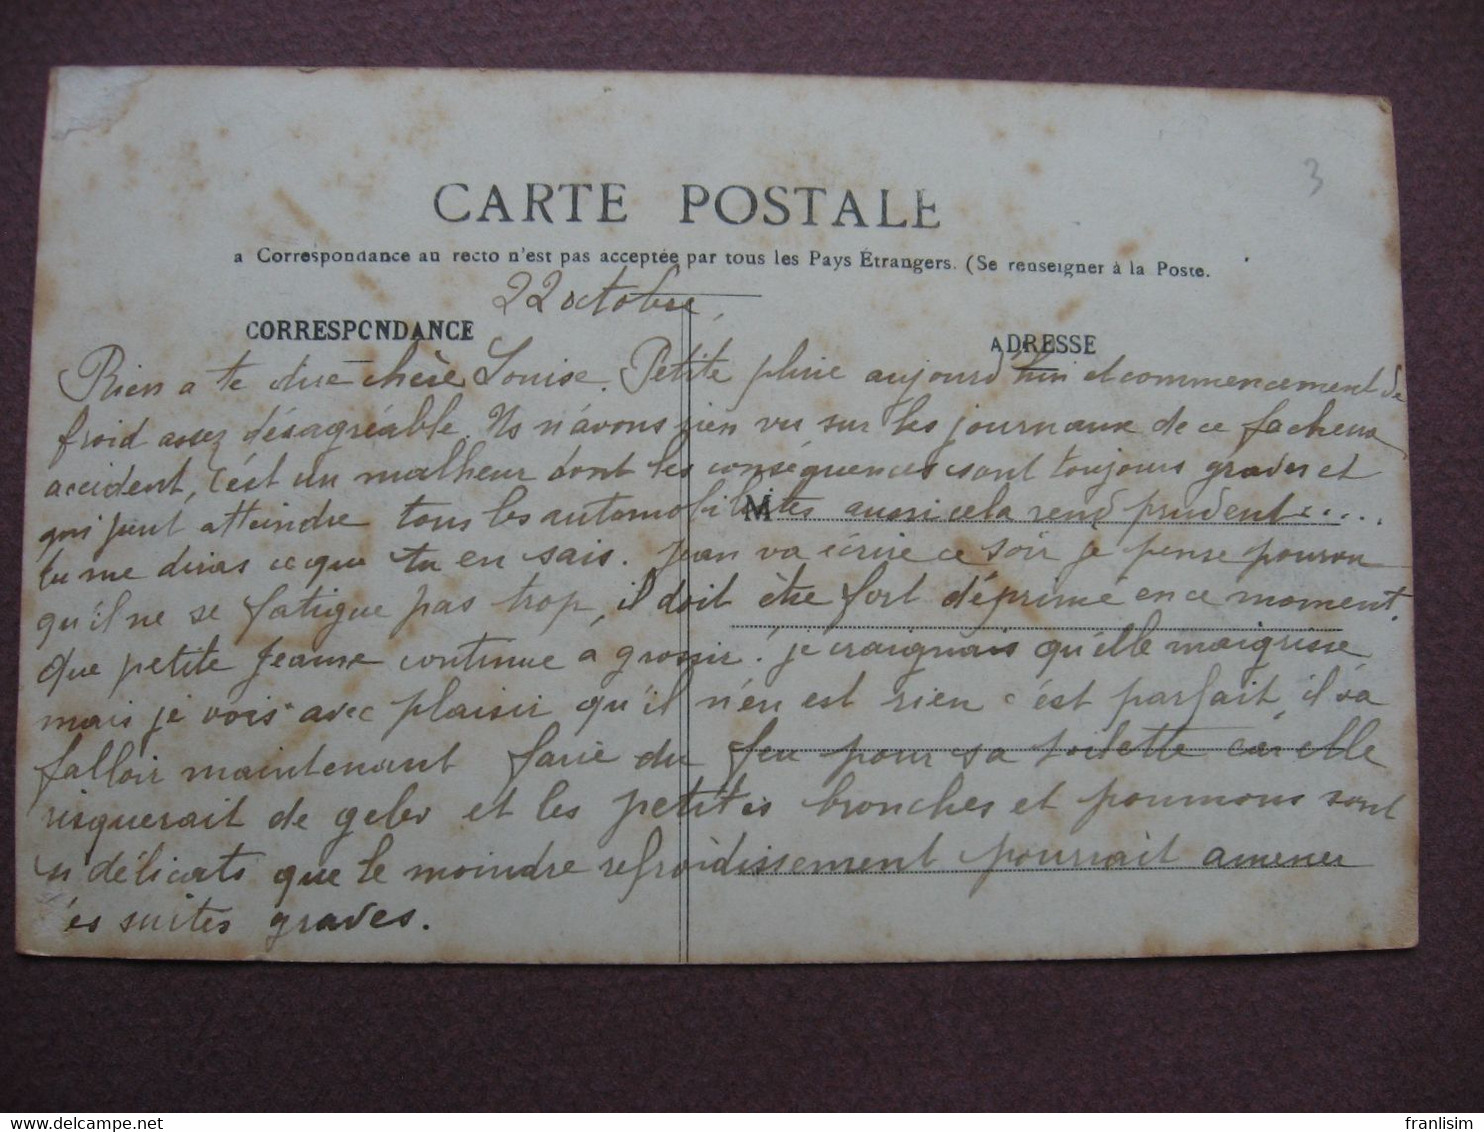 3
CARTE POSTALE
a Correspondance au recto n'est pas acceptée par tous les Pays Étrangers. (Se renseigner à la Poste.
22 octobre
CORRESPONDANCE
ADRESSE
Rien a te dire chère Louise. Petite pluie aujourd'hui et commencement de
froid assez désagréable. Ns n'avons rien vu sur les journaux de ce facheux
accident, c'est un malheur dont les conséquences sont toujours graves et
qui peut atteindre tous les automobilistes aussi cela rend prudent.....
M
tu me diras ce que tu en sais. Jean va écrire ce soir je pense pourvu
qu'il ne se fatigue pas trop, il doit être fort déprimé en ce moment.
Que petite Jeanne continue à grossir! je craignais qu'elle maigrisse
mais je vois avec plaisir qu'il n'en est rien c'est parfait, il va
falloir maintenant faire du feu pour sa toilette car elle
risquerait de geler et les petites bronches et poumons sont
si délicats que le moindre refroidissement pourrait amener
es suites graves.
franlisim